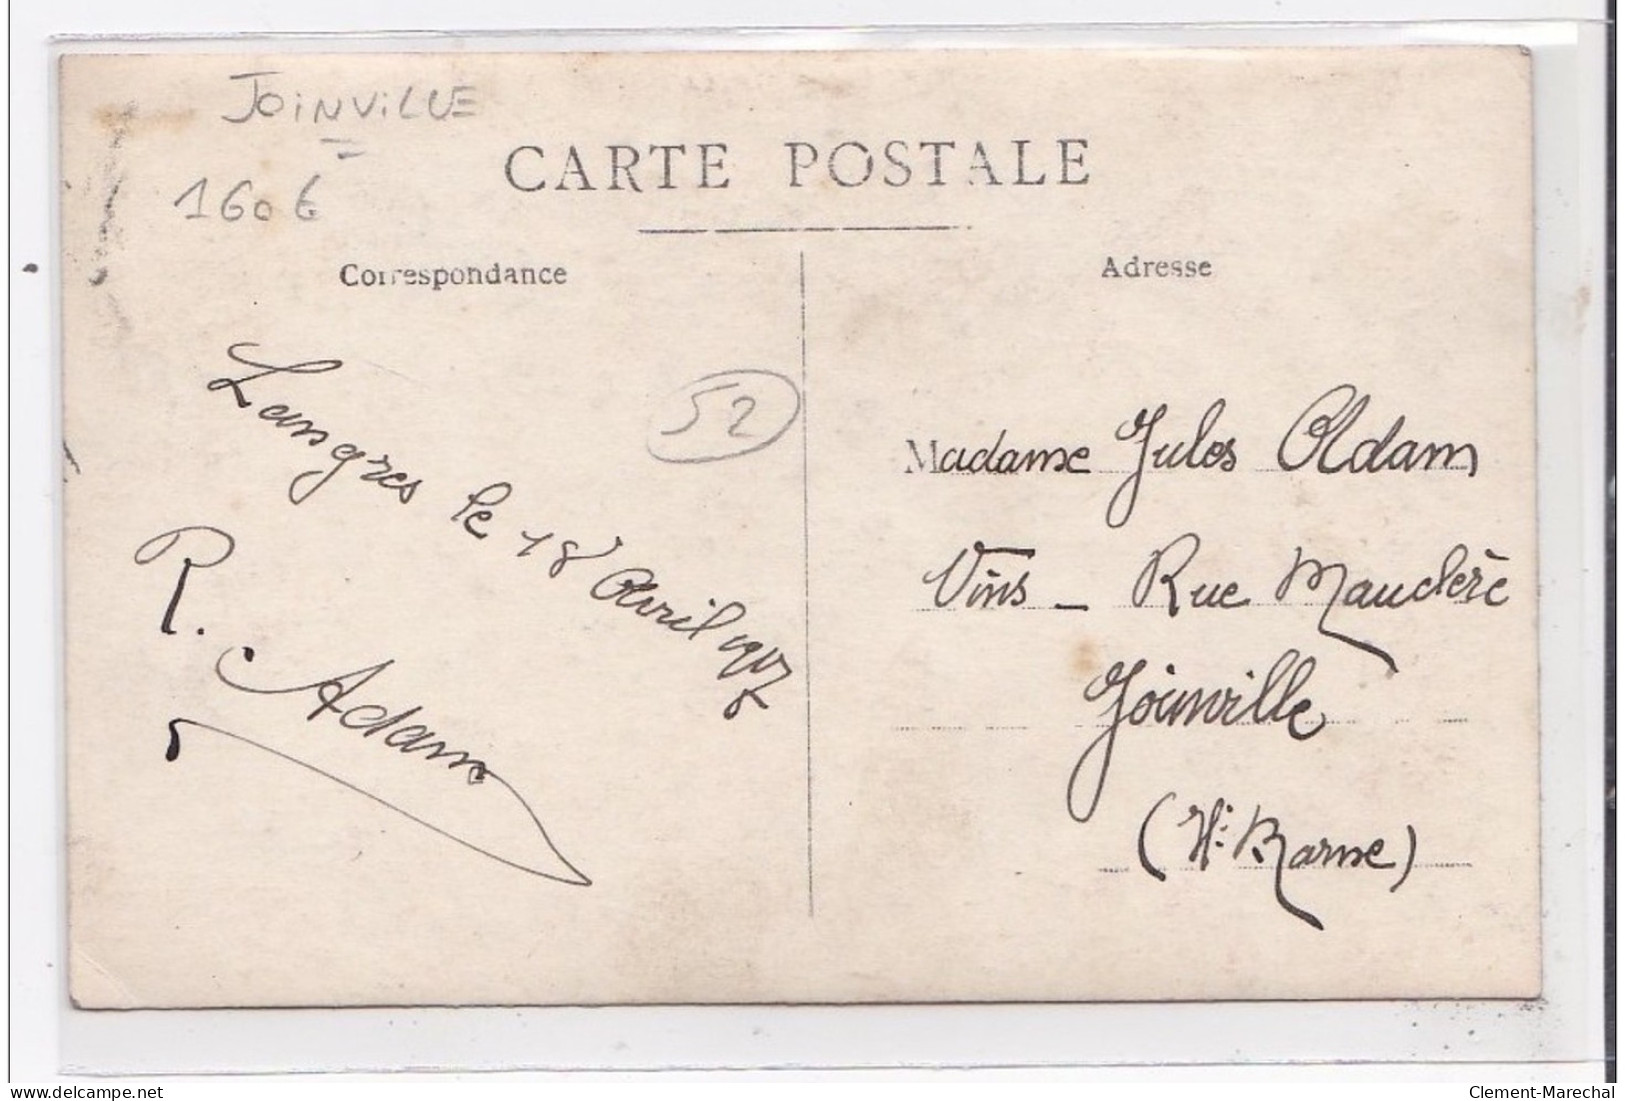 JOINVILLE
1606
CARTE POSTALE
Correspondance
Adresse
52
Langres le 18 Avril 1907
R. Adam
Madame Jules Adam
Vins - Rue Mauclère
Joinville
(Hte Marne)
delcampe.net
Clement-Marechal